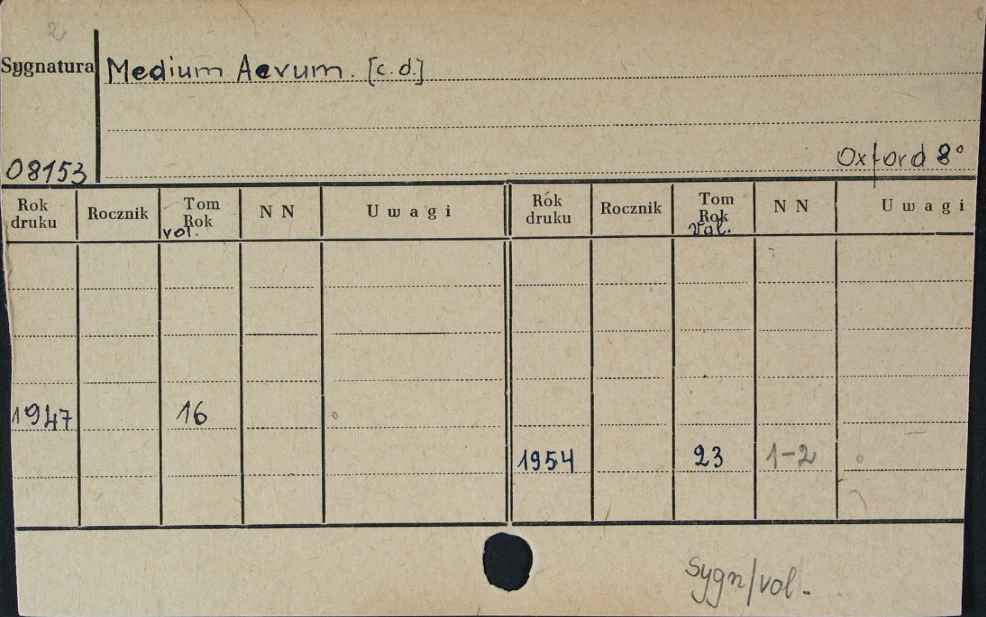 2
Sygnatura Medium Aevum. [c.d.]
08153 Oxford 8°
Rok druku Rocznik Tom Rok vol. N N Uwagi Rok druku Rocznik Tom Rok Vol. N N Uwagi
1947 16
1954 23 1-2
Sygn/vol.